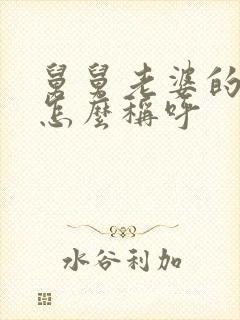 舅舅老婆的
怎麼稱呼
水谷利加